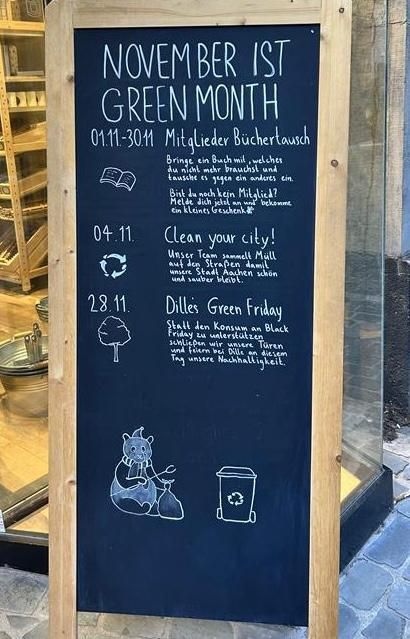 NOVEMBER IST
GREEN MONTH
01.11-30.11 Mitglieder Büchertausch
Bringe ein Buch mit, welches
du nicht mehr brauchst und
tausche es gegen ein anderes ein.
Bist du noch kein Mitglied?
Melde dich jetzt an und bekomme
ein kleines Geschenk
04.11. Clean your city!
Unser Team sammelt Müll
auf den Straßen damit
unsere Stadt Aachen schön
und sauber bleibt.
28.11. Dille's Green Friday
Statt den Konsum an Black
Friday zu unterstützen
schließen wir unsere Türen
und feiern bei Dille an diesem
Tag unsere Nachhaltigkeit.